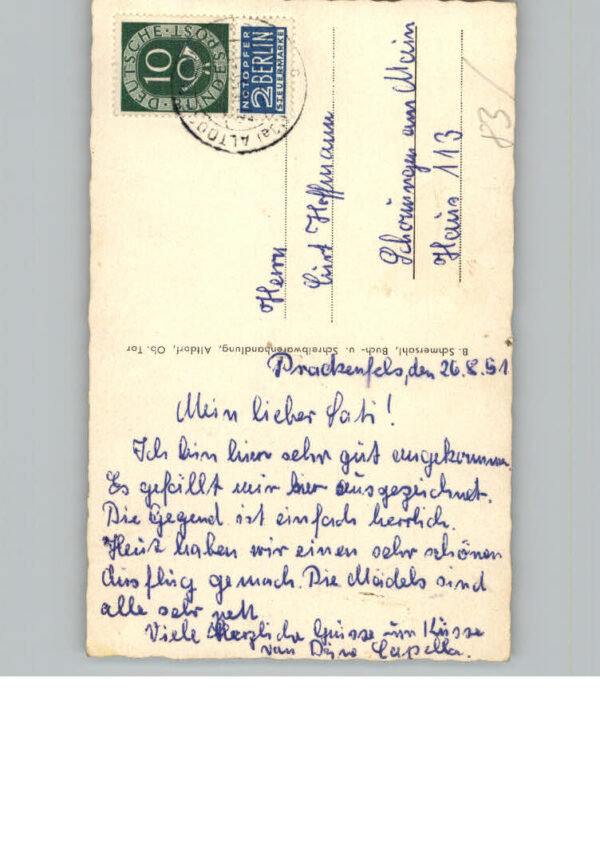 DEUTSCHE BUNDESPOST
10
NOTOPFER
2 BERLIN
STEUERMARKE
ALTDO
Herrn
Curt Hoffmann
Schonungen am Main
Haus 113
83/
B. Schmersahl, Buch- u. Schreibwarenhandlung, Altdorf, Ob. Tor
Prackenfels, den 26.8.51
Mein lieber Pati!
Ich bin hier sehr gut angekommen.
Es gefällt mir hier ausgezeichnet.
Die Gegend ist einfach herrlich.
Heut haben wir einen sehr schönen
Ausflug gemach. Die Mädels sind
alle sehr nett
Viele Herzliche Grüsse un Küsse
von Capella.